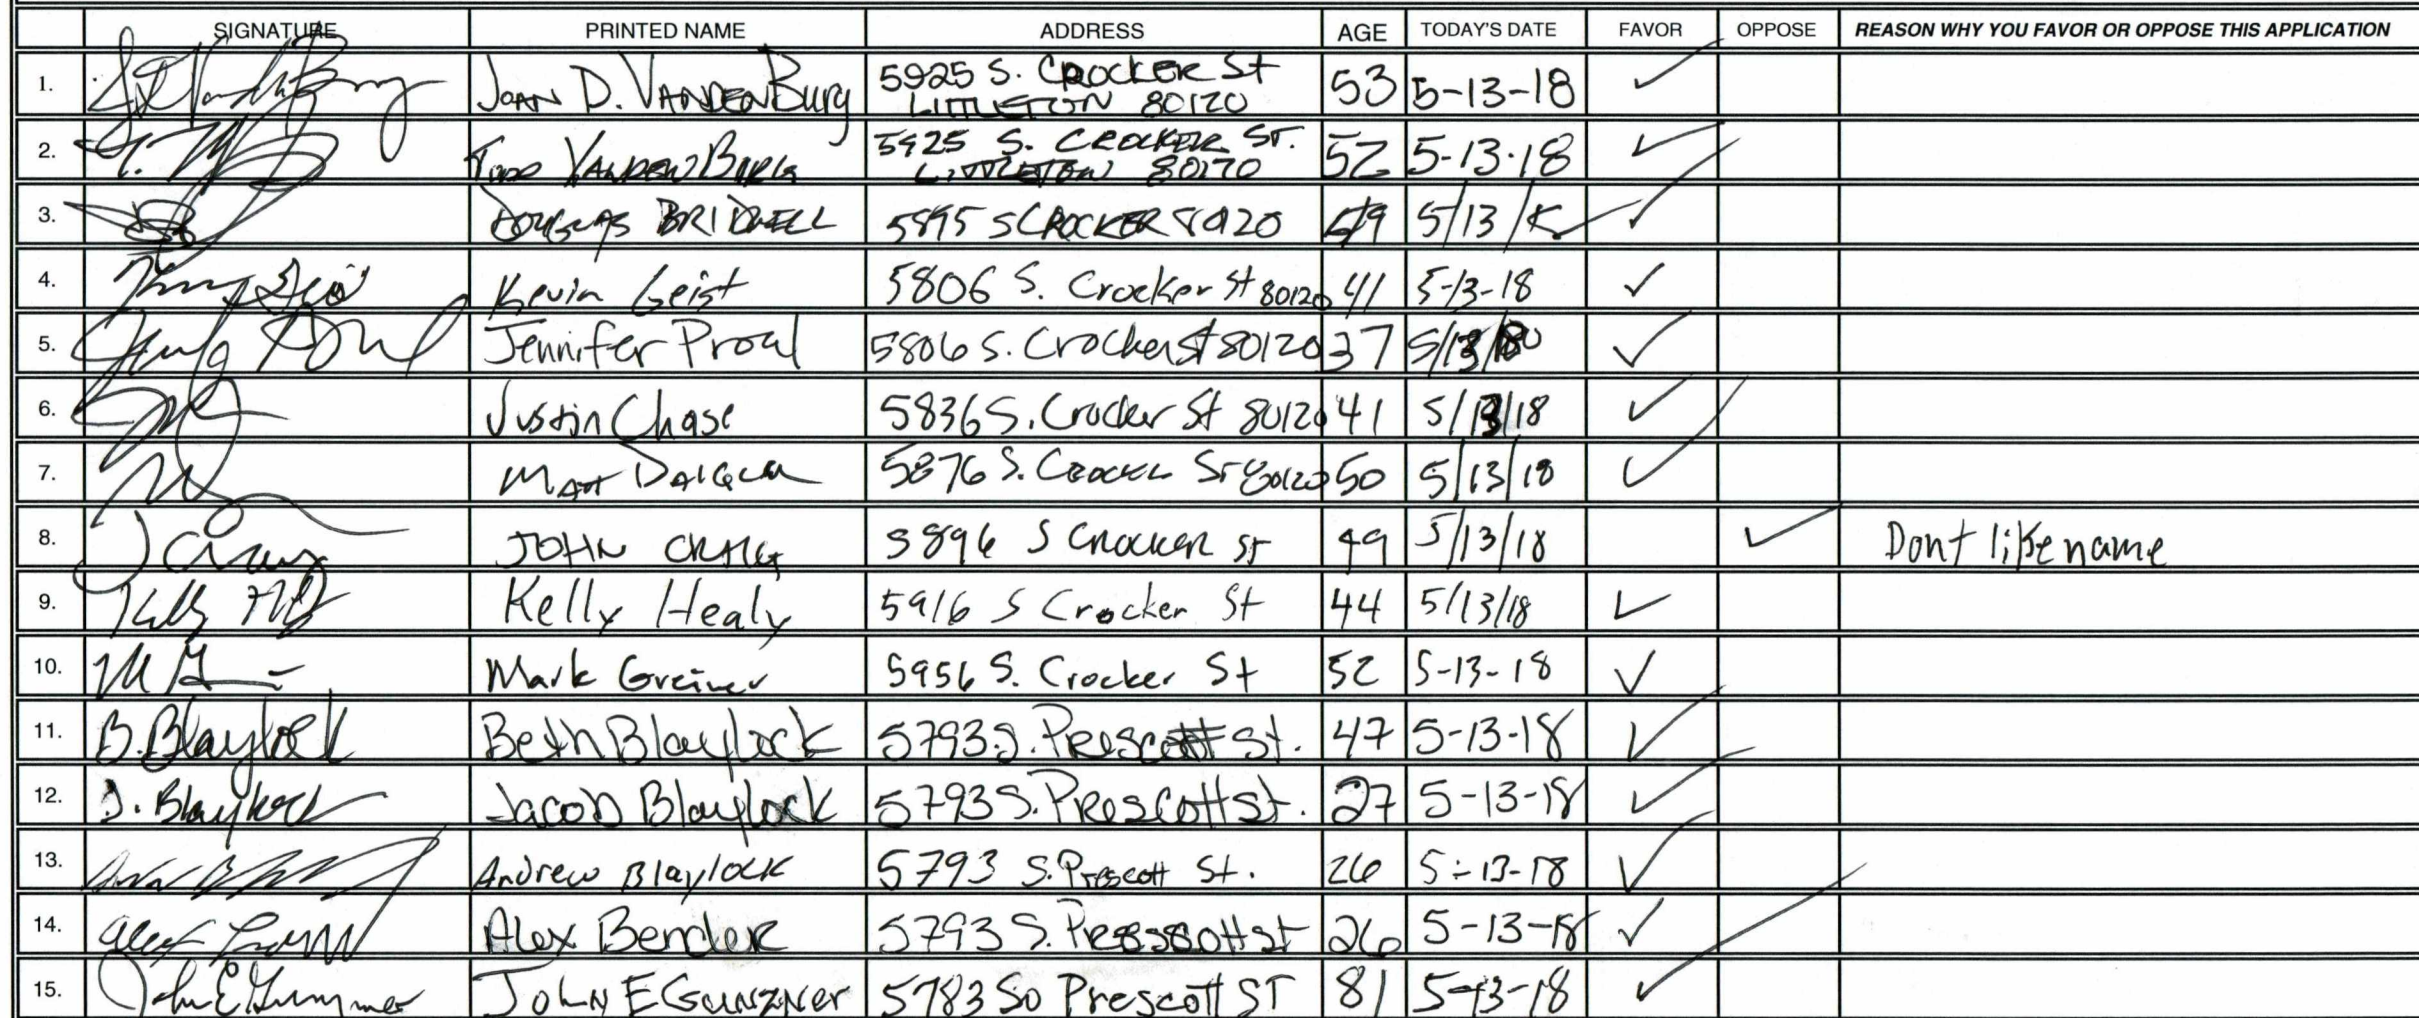 SIGNATURE PRINTED NAME ADDRESS AGE TODAY'S DATE FAVOR OPPOSE REASON WHY YOU FAVOR OR OPPOSE THIS APPLICATION
1. Joan D. VandenBurg 5925 S. Crocker St 53 5-13-18 ✓
Littleton 80120
2. Todd VandenBurg 5925 S. Crocker St. 52 5-13-18 ✓
Littleton 80120
3. Douglas Bridwell 5895 S Crocker 5/13 ✓
4. Kevin Geist 5806 S. Crocker St 80120 41 5-13-18 ✓
5. Jennifer Proal 5806 S. Crocker St 80120 37 5/13/ ✓
6. Justin Chase 5836 S. Crocker St 80120 41 5/13/18 ✓
7. Matt 5876 S. Crocker St 80120 50 5/13/18 ✓
8. JOHN CRAIG 5896 S Crocker St 49 5/13/18 ✓ Dont like name
9. Kelly Healy 5916 S Crocker St 44 5/13/18 ✓
10. Mark Greiner 5956 S. Crocker St 52 5-13-18 ✓
11. B. Blaylock Beth Blaylock 5793 S. Prescott St. 47 5-13-18 ✓
12. J. Blaylock Jacob Blaylock 5793 S. Prescott St. 27 5-13-18 ✓
13. Andrew Blaylock 5793 S. Prescott St. 26 5-13-18 ✓
14. Alex Bender 5793 S. Prescott St 26 5-13-18 ✓
15. John E Gunzner John E Gunzner 5783 So Prescott ST 81 5-13-18 ✓